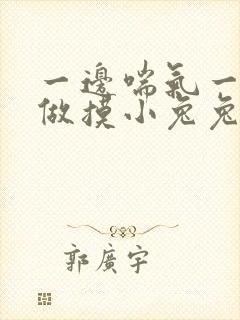 一邊喘氣一
做摸小兔兔
郭廣宇